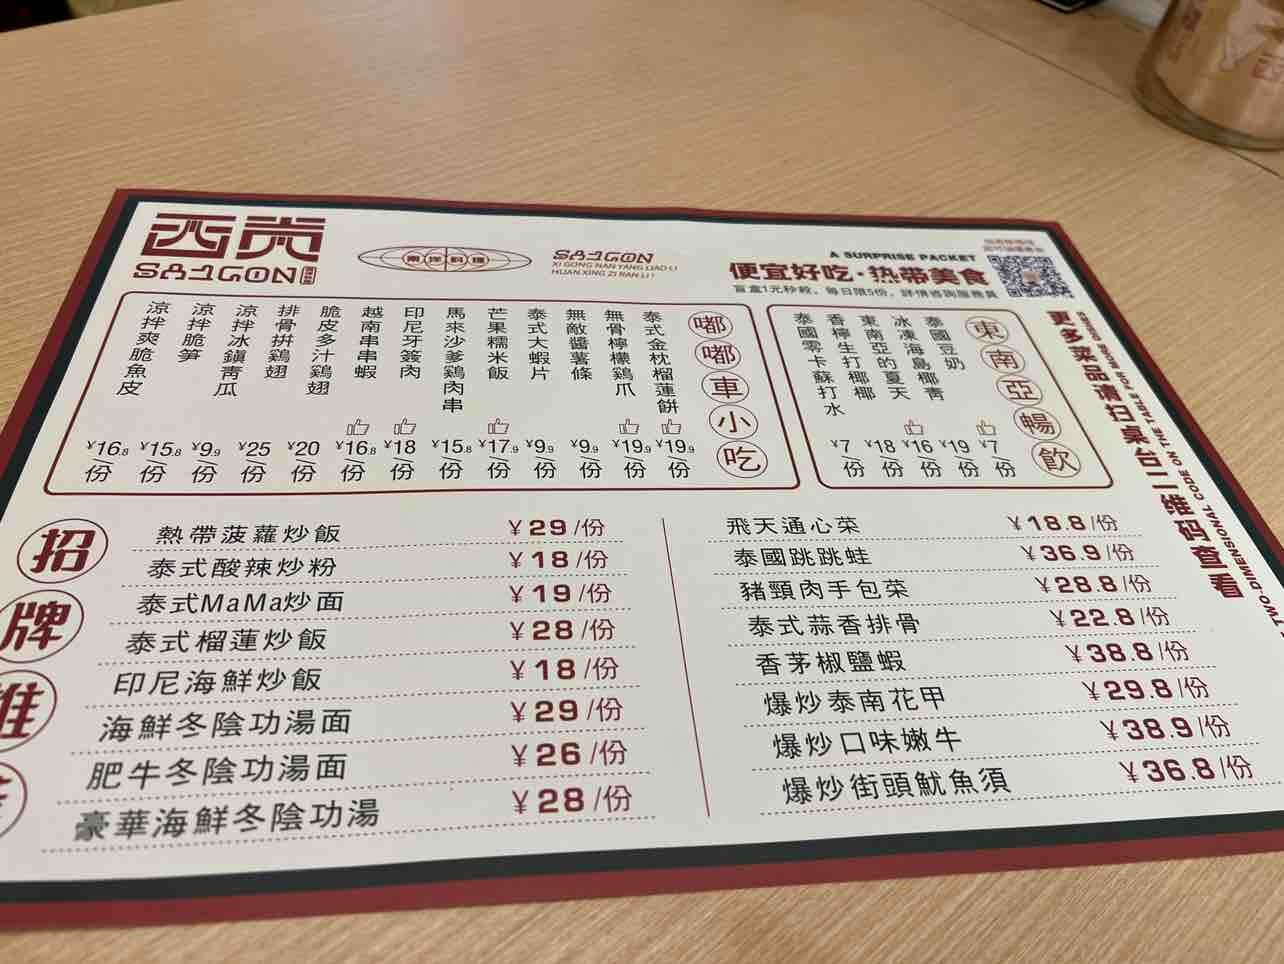 西贡
SAIGON
南洋料理
SAIGON
XI GONG NAN YANG LIAO LI
HUAN XING ZI RAN LI !
A SURPRISE PACKET
便宜好吃·热带美食
盲盒1元秒殺，每日限5份，詳情咨詢服務員
嘟嘟車小吃
泰式金枕榴蓮餅 ¥19.9/份
無骨檸檬鷄爪 ¥19.9/份
無敵醬薯條 ¥9.9/份
泰式大蝦片 ¥9.9/份
芒果糯米飯 ¥17.9/份
馬來沙爹鷄肉串 ¥15.8/份
印尼牙簽肉 ¥18/份
越南串串蝦 ¥16.8/份
脆皮多汁鷄翅 ¥20/份
排骨拼鷄翅 ¥25/份
涼拌冰鎮青瓜 ¥9.9/份
涼拌脆笋 ¥15.8/份
涼拌爽脆魚皮 ¥16.8/份
東南亞暢飲
泰國豆奶 ¥7/份
冰凍海島椰青 ¥19/份
東南亞的夏天 ¥16/份
香檸生打椰椰 ¥18/份
泰國零卡蘇打水 ¥7/份
更多菜品请扫桌台二维码查看
招牌推薦
熱帶菠蘿炒飯 ¥29/份
泰式酸辣炒粉 ¥18/份
泰式MaMa炒面 ¥19/份
泰式榴蓮炒飯 ¥28/份
印尼海鮮炒飯 ¥18/份
海鮮冬陰功湯面 ¥29/份
肥牛冬陰功湯面 ¥26/份
豪華海鮮冬陰功湯 ¥28/份
飛天通心菜 ¥18.8/份
泰國跳跳蛙 ¥36.9/份
豬頸肉手包菜 ¥28.8/份
泰式蒜香排骨 ¥22.8/份
香茅椒鹽蝦 ¥38.8/份
爆炒泰南花甲 ¥29.8/份
爆炒口味嫩牛 ¥38.9/份
爆炒街頭魷魚須 ¥36.8/份